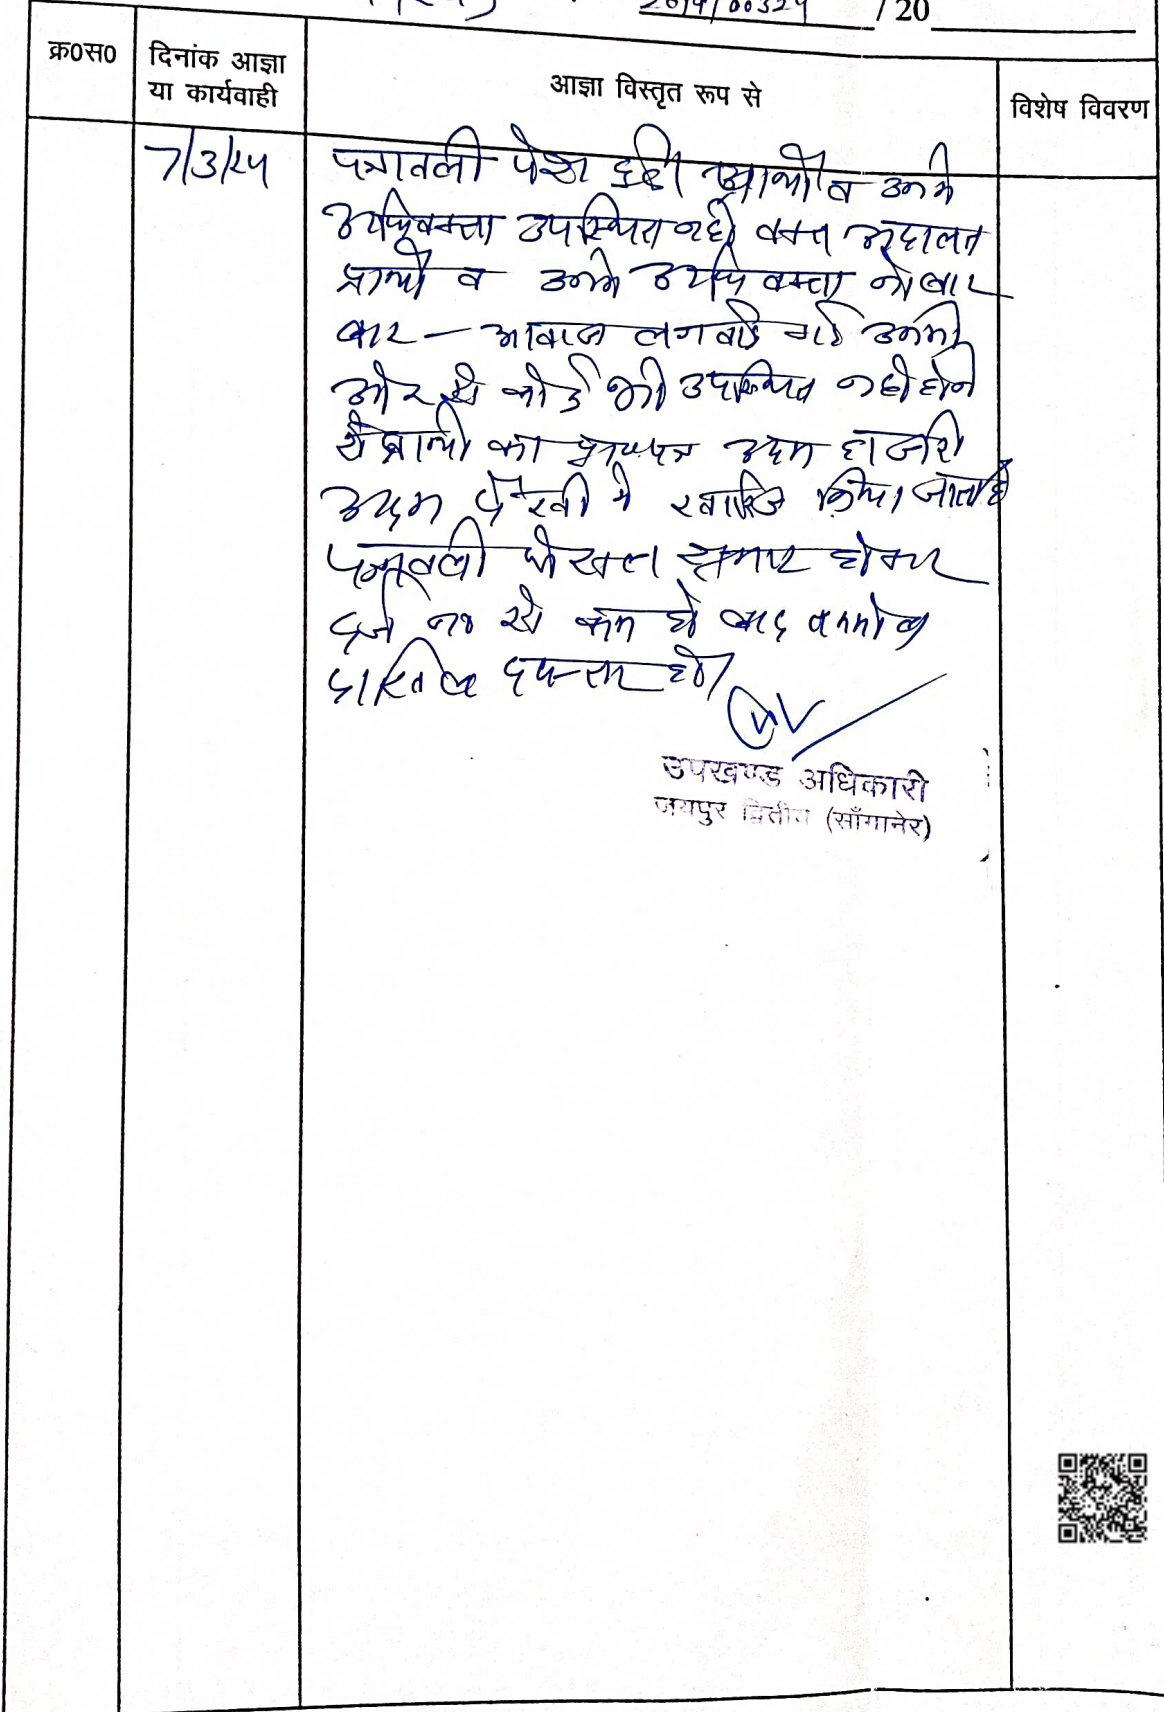 / 20
क्र0स0 दिनांक आज्ञा या कार्यवाही आज्ञा विस्तृत रूप से विशेष विवरण
7/3/24 पत्रावली पेश हुई। प्रार्थी व उनके
अधिवक्ता उपस्थित नहीं वक्त अदालत
प्रार्थी व उनके अधिवक्ता को बार
बार – आवाज लगवाई गई उनकी
ओर से कोई भी उपस्थित नहीं होने
से प्रार्थी का प्रा०पत्र अदम हाजरी
अदम पैरवी में खारिज किया जाता है
पत्रावली फैसल शुमार होकर
दर्ज न० से कम हो बाद
दाखिल दफ्तर हो।
उपखण्ड अधिकारी
जयपुर द्वितीय (साँगानेर)